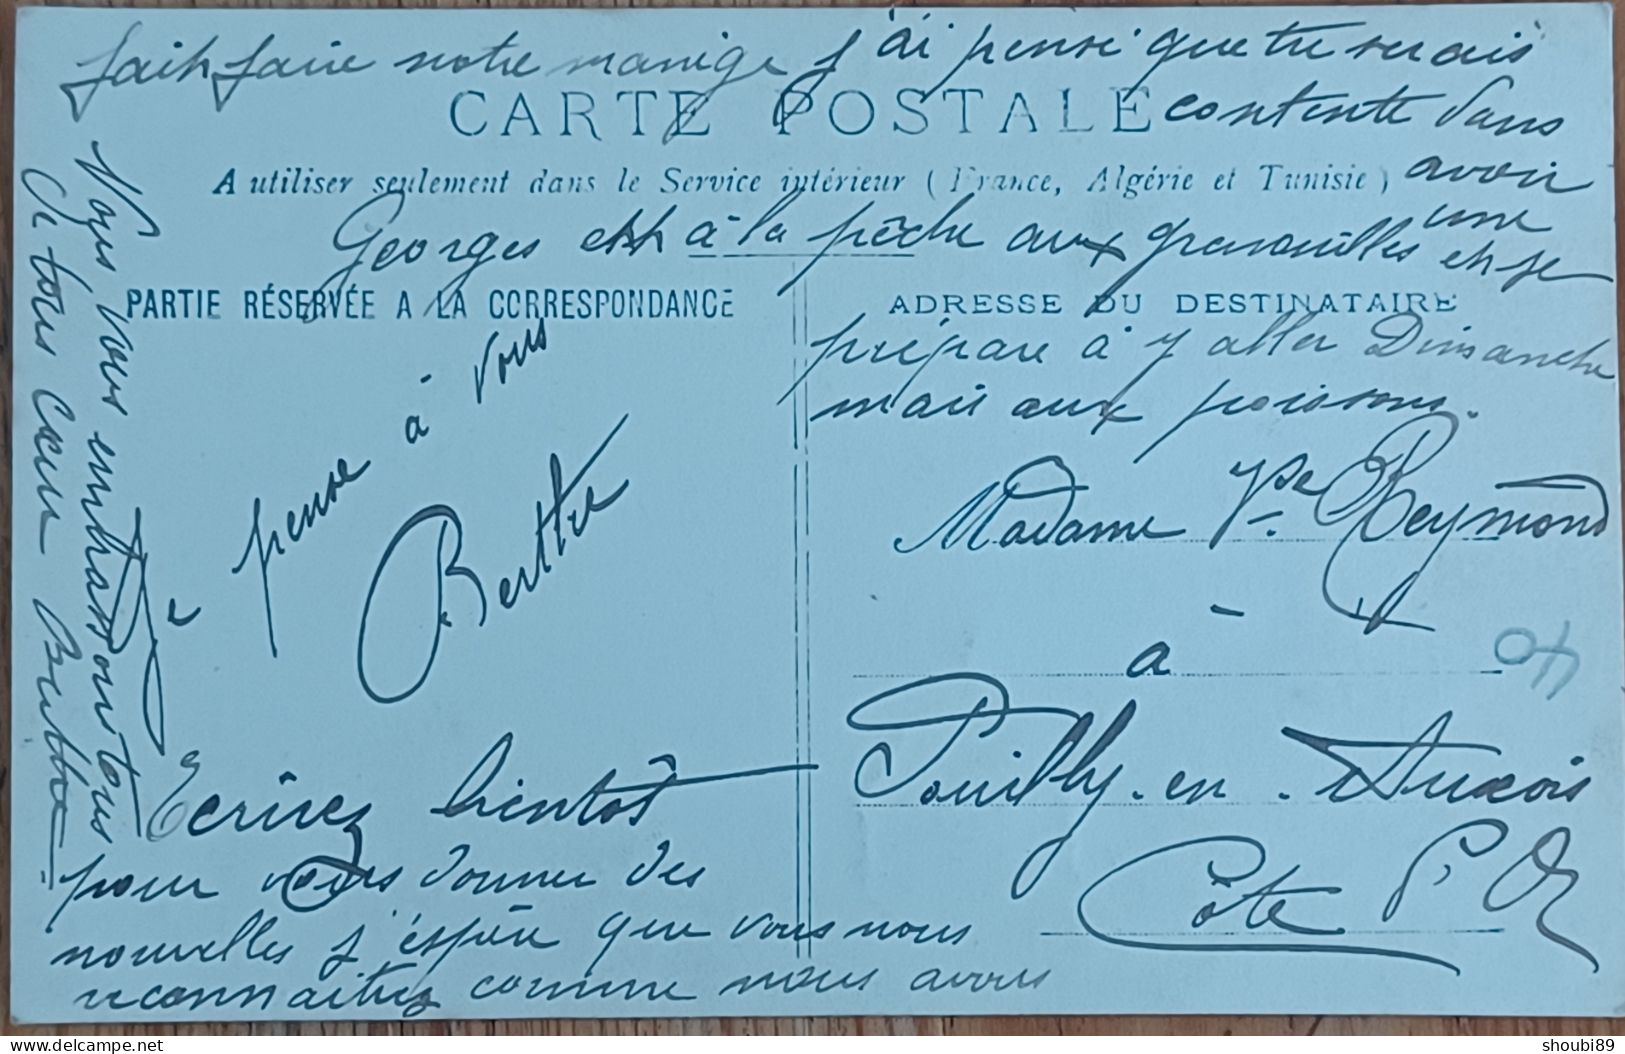 fait faire notre manège j'ai pensé que tu serais
CARTE POSTALE
contente d'en
A utiliser seulement dans le Service intérieur (France, Algérie et Tunisie)
avoir
une
Georges est à la pêche aux grenouilles et je
PARTIE RÉSERVÉE A LA CORRESPONDANCE
ADRESSE DU DESTINATAIRE
prépare à y aller Dimanche
mais aux poissons.
Je pense à vous
Berthe
Madame Vve Reymond
à
Pouilly-en-Auxois
Côte d'Or
40
Ecrivez bientôt
pour nous donner des
nouvelles j'espère que vous nous
reconnaitrez comme nous avons
Nous vous embrassons tous
de tout Cœur Berthe
shoubi89